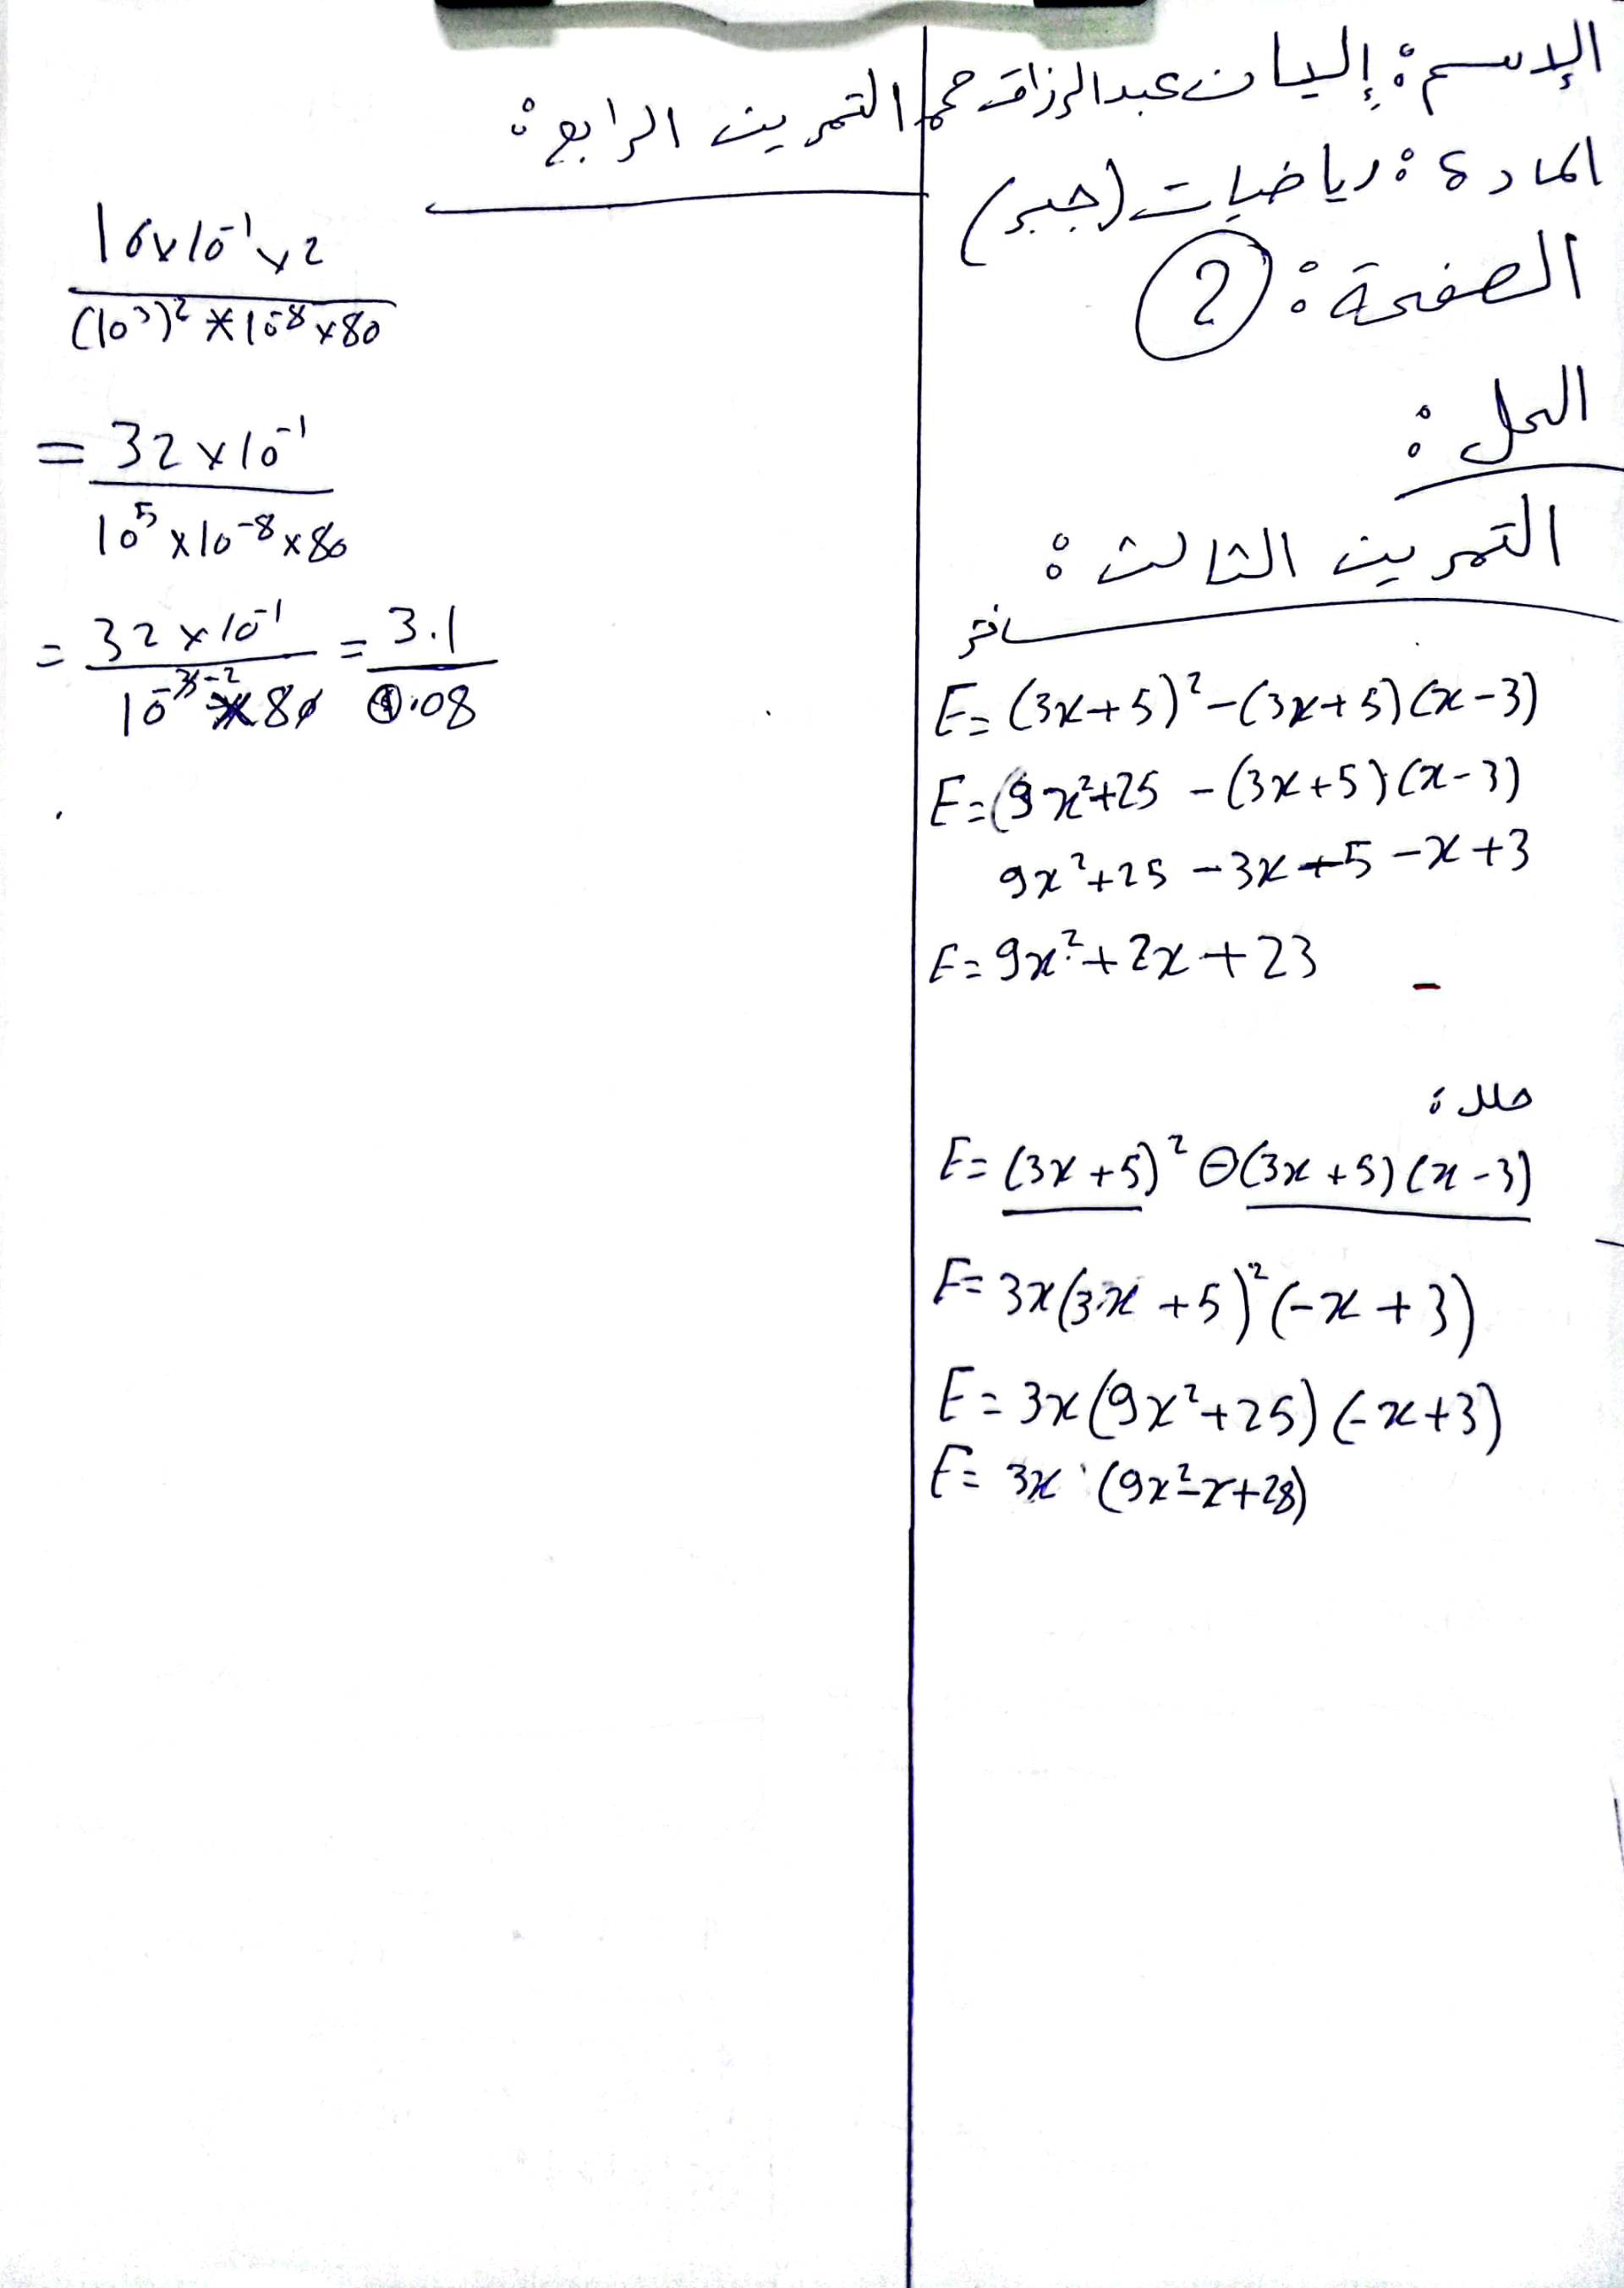 الإسم: إليان عبدالرزاق حمد
المادة: رياضيات (جبر)
الصفحة: 2
الحل:
التمرين الثالث:
E = (3x+5)² - (3x+5)(x-3)
E = (9x²+25 - (3x+5)(x-3)
9x²+25 - 3x+5 - x+3
E = 9x²+2x+23
حلل:
E = (3x+5)² ⊖ (3x+5)(x-3)
E = 3x(3x+5)²(-x+3)
E = 3x(9x²+25)(-x+3)
E = 3x (9x²-x+28)
التمرين الرابع:
16×10⁻¹×2
(10³)²×10⁻⁸×80
= 32×10⁻¹
10⁵×10⁻⁸×80
= 32×10⁻¹ = 3.1
10⁻²×80 0.08